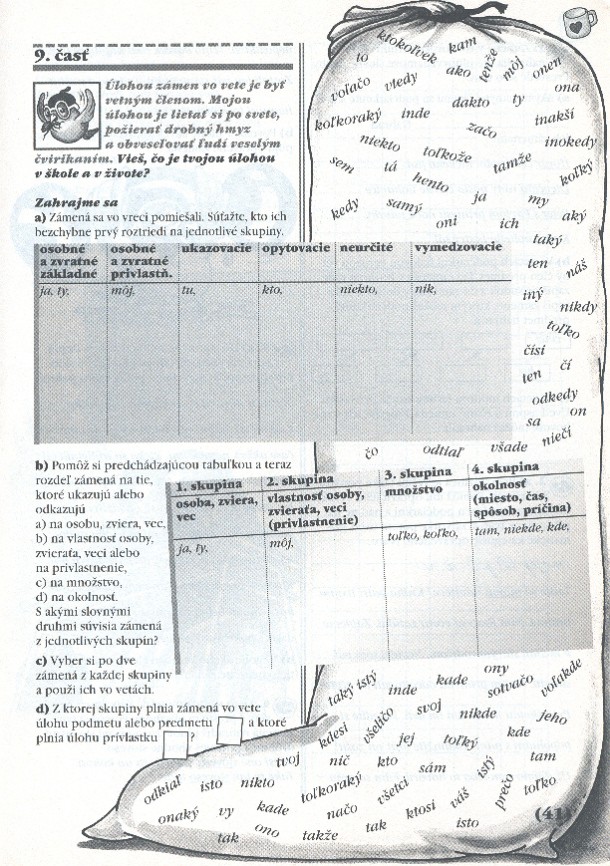 9. časť
Úlohou zámen vo vete je byť
vetným členom. Mojou
úlohou je lietať si po svete,
požierať drobný hmyz
a obveseľovať ľudí veselým
čvirikaním. Vieš, čo je tvojou úlohou
v škole a v živote?
Zahrajme sa
a) Zámená sa vo vreci pomiešali. Súťažte, kto ich
bezchybne prvý roztriedi na jednotlivé skupiny.
osobné a zvratné základné
osobné a zvratné privlastň.
ukazovacie
opytovacie
neurčité
vymedzovacie
ja, ty,
môj,
tu,
kto,
niekto,
nik,
b) Pomôž si predchádzajúcou tabuľkou a teraz
rozdeľ zámená na tie,
ktoré ukazujú alebo
odkazujú
a) na osobu, zviera, vec,
b) na vlastnosť osoby,
zvieraťa, veci alebo
na privlastnenie,
c) na množstvo,
d) na okolnosť.
S akými slovnými
druhmi súvisia zámená
z jednotlivých skupín?
1. skupina
osoba, zviera,
vec
2. skupina
vlastnosť osoby,
zvieraťa, veci
(privlastnenie)
3. skupina
množstvo
4. skupina
okolnosť
(miesto, čas,
spôsob, príčina)
ja, ty,
môj,
toľko, koľko,
tam, niekde, kde,
c) Vyber si po dve
zámená z každej skupiny
a použi ich vo vetách.
d) Z ktorej skupiny plnia zámená vo vete
úlohu podmetu alebo predmetu
a ktoré
plnia úlohu prívlastku
?
ktokoľvek
kam
to
ako
tenže
môj
onen
voľačo
vtedy
ona
dakto
ty
koľkoraký
inde
inakší
začo
inokedy
niekto
toľkože
tamže
sem
tá
hento
koľký
ja
my
kedy
samý
aký
oni
ich
taký
ten
náš
iný
nikdy
toľko
čísi
ten
čí
odkedy
sa
on
niečí
čo
odtiaľ
všade
taký istý
inde
kade
ony
sotvačo
voľakde
kdesi
všeličo
svoj
nikde
jeho
jej
toľký
kde
tvoj
nič
kto
sám
istý
tam
odkiaľ
isto
nikto
toľkoraký
všetci
prečo
toľko
onaký
vy
kade
načo
ktosi
váš
tak
ono
takže
tak
isto
(41)